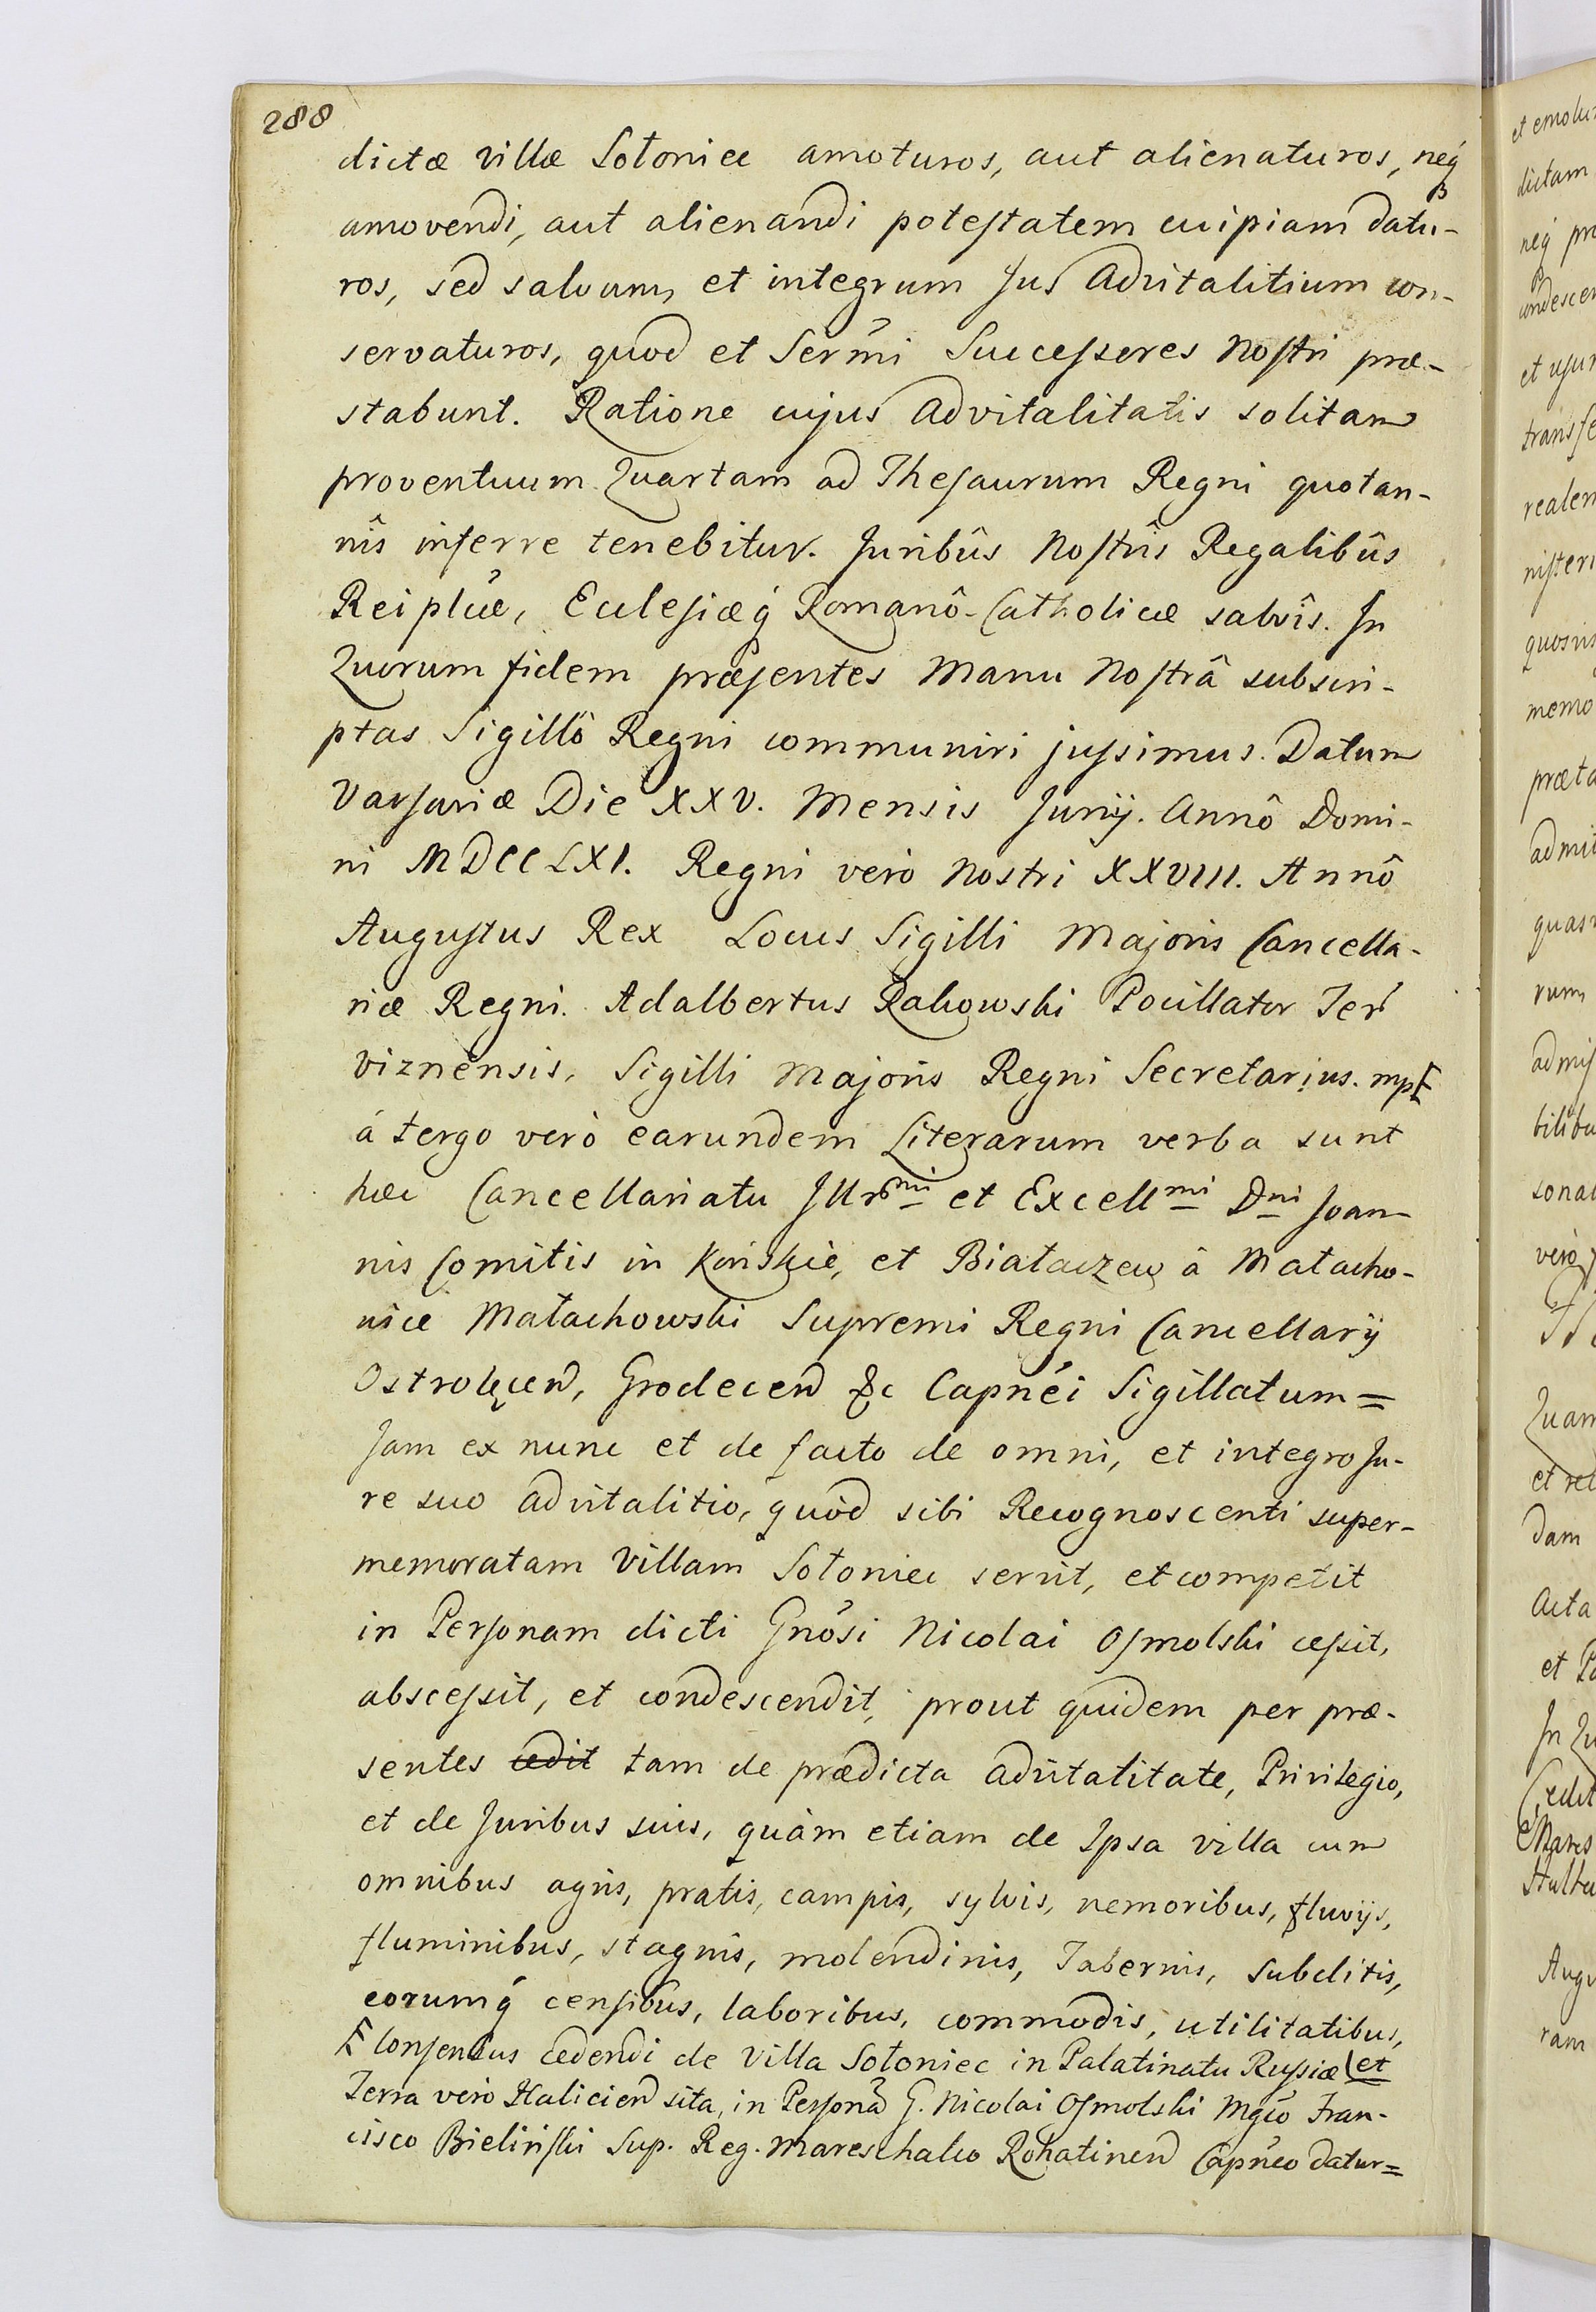 288
dictæ villæ Sołoniec amoturos, aut alienaturos, neq̃
amovendi, aut alienandi potestatem cuipiam datu-
ros, sed salvum, et integrum Jus Advitalitium con-
servaturos, quod et Serm̃i Successeres Nostri præ-
stabunt. Ratione cujus Advitalitatis solitam
proventuum Quartam ad Thesaurum Regni quotan-
nîs inferre tenebitur. Juribûs Nostrîs Regalibûs
Reipl̃cæ, Ecclesiæq́ Romanô-Catholicæ salvîs. In
Quorum fidem præsentes Manu Nostrâ subscri-
ptas Sigillô Regni communiri jussimus. Datum
Varsaviæ Die XXV. Mensis Junij. Annô Domi-
ni MDCCLXI. Regni verò Nostri XXVIII. Annô
Augustus Rex Locus Sigilli Majoris Cancella-
riæ Regni. Adalbertus Rakowski Pocillator Ter̃
Viznensis, Sigilli Majoris Regni Secretarius. mp
á tergo verò earundem Literarum verba sunt
hæc Cancellariatu Illr̃mi et Excellmi Dni Joan-
nis Comitis in Końskie, et Białaczew â Małacho-
wice Małachowski Supremi Regni Cancellarij
Ostrołęcen̄, Grodecen̄ &c Capn̄ei Sigillatum=
Jam ex nunc et de facto de omni, et integro Ju-
re suo advitalitio, quòd sibi Recognoscenti super-
memoratam Villam Sołoniec servit, et competit
in Personam dicti Gn̄osi Nicolai Osmolski cessit,
abscessit, et condescendit, prout quidem per præ-
sentes cedit tam de prædicta advitalitate, Privilegio,
et de Juribus suis, quàm etiam de Ipsa villa cum
omnibus agris, pratis, campis, sylvis, nemoribus, fluvijs,
fluminibus, stagnis, molendinis, Tabernis, Subditis,
eorumq́ censibus, laboribus, commodis, utilitatibus,
Consensus cedendi de Villa Sołoniec in Palatinatu Russiæ et
Terra verò Halicien̄ sita, in Personā G. Nicolai Osmolski Mgc̃o Fran-
cisco Bieliński Sup. Reg. Mareschalco Rohatinen̄ Capn̄eo datur=